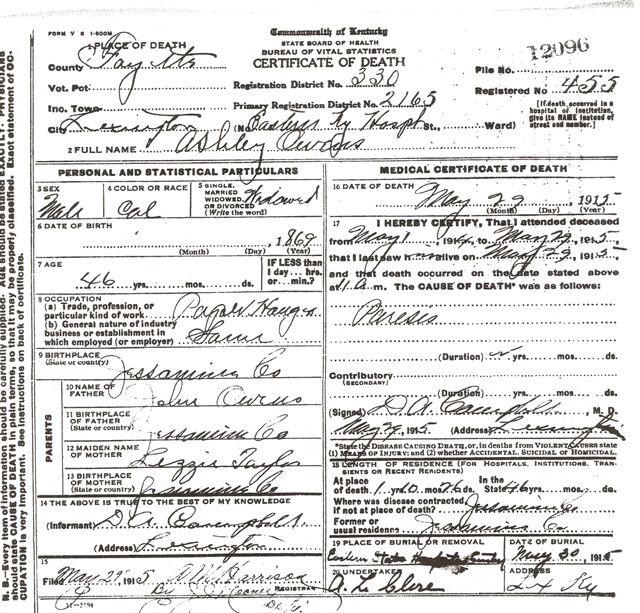 FORM V S 1-500M
Commonwealth of Kentucky
STATE BOARD OF HEALTH
BUREAU OF VITAL STATISTICS
CERTIFICATE OF DEATH
12096
1 PLACE OF DEATH
County Fayette
File No.
Vot. Pct.
Registration District No. 330
Registered No. 455
Inc. Town
Primary Registration District No. 2165
[If death occurred in a hospital or institution, give its NAME instead of street and number.]
City Lexington (No. Eastern Ky Hospt St., Ward)
2 FULL NAME Ashley Owens
PERSONAL AND STATISTICAL PARTICULARS
3 SEX Male
4 COLOR OR RACE Col
5 SINGLE, MARRIED WIDOWED, OR DIVORCED (Write the word) Widowed
6 DATE OF BIRTH
1869
(Month) (Day) (Year)
7 AGE
46 yrs. mos. ds.
IF LESS than 1 day ... hrs. or ... min.?
8 OCCUPATION
(a) Trade, profession, or particular kind of work Paper Hanger
(b) General nature of industry business or establishment in which employed (or employer) Same
9 BIRTHPLACE
(State or country) Jessamine Co
PARENTS
10 NAME OF FATHER Owens
11 BIRTHPLACE OF FATHER
(State or country) Jessamine Co
12 MAIDEN NAME OF MOTHER Lizzie Taylor
13 BIRTHPLACE OF MOTHER
(State or country) Jessamine Co
14 THE ABOVE IS TRUE TO THE BEST OF MY KNOWLEDGE
(Informant) D. A.
(Address) Lexington
15
Filed May 29 1915 Harrison
REGISTRAR
By
MEDICAL CERTIFICATE OF DEATH
16 DATE OF DEATH
May 29 1915
(Month) (Day) (Year)
17 I HEREBY CERTIFY, That I attended deceased
from May 1 191 to May 29 1915
that I last saw alive on May 29 1915
and that death occurred on the date stated above
at 11 a m. The CAUSE OF DEATH* was as follows:
Paresis
(Duration) yrs. mos. ds.
Contributory
(SECONDARY)
(Duration) yrs. mos. ds.
(Signed) D. A. M. D.
May 29 1915 (Address) Lexington
*State the DISEASE CAUSING DEATH, or, in deaths from VIOLENT CAUSES state (1) MEANS OF INJURY; and (2) whether ACCIDENTAL, SUICIDAL or HOMICIDAL.
18 LENGTH OF RESIDENCE (FOR HOSPITALS, INSTITUTIONS, TRANSIENTS OR RECENT RESIDENTS)
At place of death 1 yrs. 0 mos. 26 ds. In the State 46 yrs. mos. ds.
Where was disease contracted, if not at place of death? Jessamine Co
Former or usual residence Jessamine Co
19 PLACE OF BURIAL OR REMOVAL
Eastern State
DATE OF BURIAL
May 30 1915
20 UNDERTAKER
A. L.
ADDRESS
Lex Ky
N. B.—Every item of information should be carefully supplied. AGE should be stated EXACTLY. PHYSICIANS
should state CAUSE OF DEATH in plain terms, so that it may be properly classified. Exact statement of OCCUPATION is very important. See instructions on back of certificate.